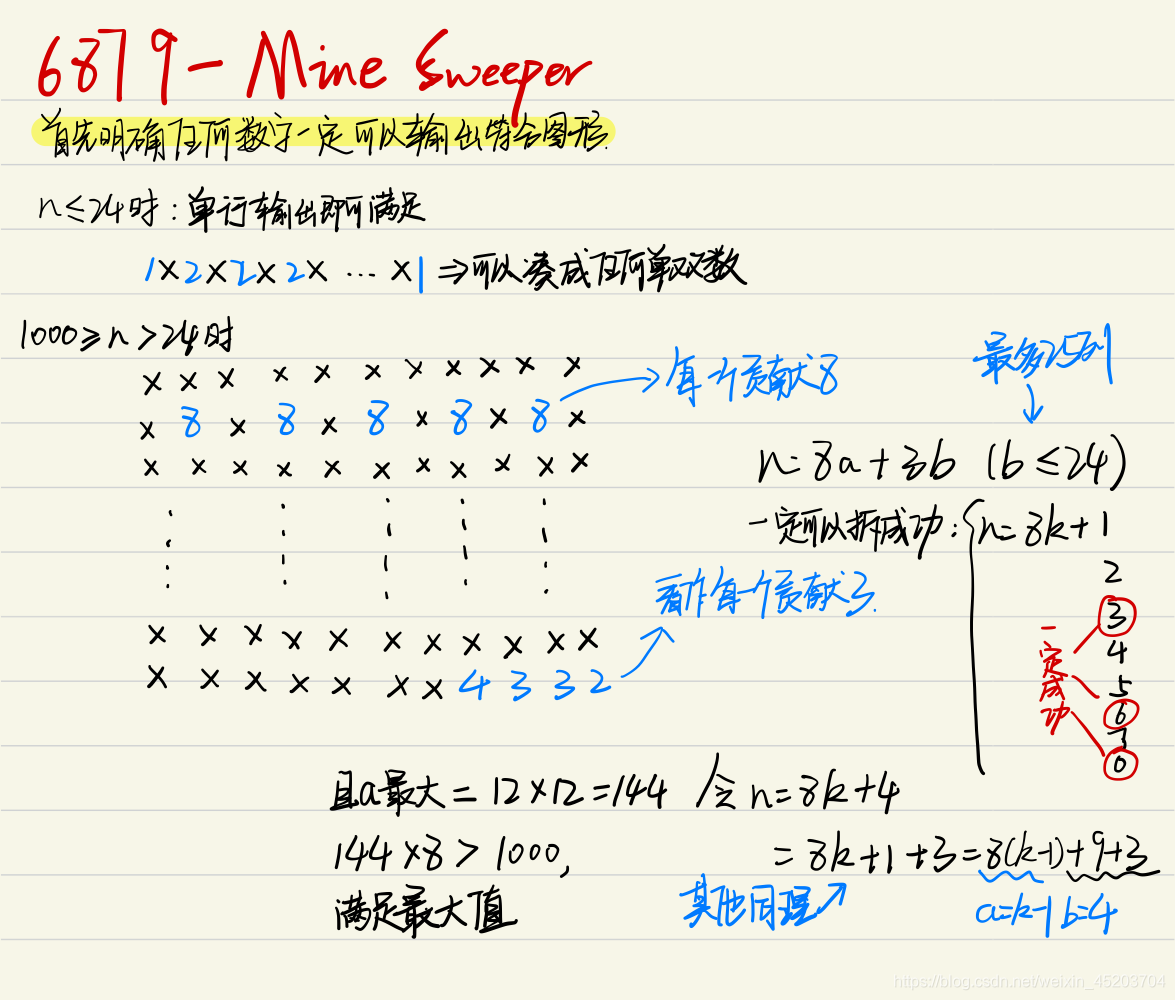 6879 - Mine Sweeper
首先明确任何数字一定可以输出符合图形.
n≤24时:单行输出即可满足
1×2×2×2× ··· ×1 ⇒可以凑成任何单双数
1000≥n>24时
× × × × × × × × × × ×
× 8 × 8 × 8 × 8 × 8 ×
→每个贡献8
最多25列
× × × × × × × × × × ×
n=8a+3b (b≤24)
一定可以拆成功: { n=8k+1
2
3
4
5
6
7
0
一定成功
看作每一个贡献3.
× × × × × × × × × × ×
× × × × × × × 4 3 3 2
且a最大=12×12=144
144×8>1000,
满足最大值
令n=8k+4
=8k+1+3=8(k-1)+9+3
其他同理↗
a=k-1 b=4
https://blog.csdn.net/weixin_45203704